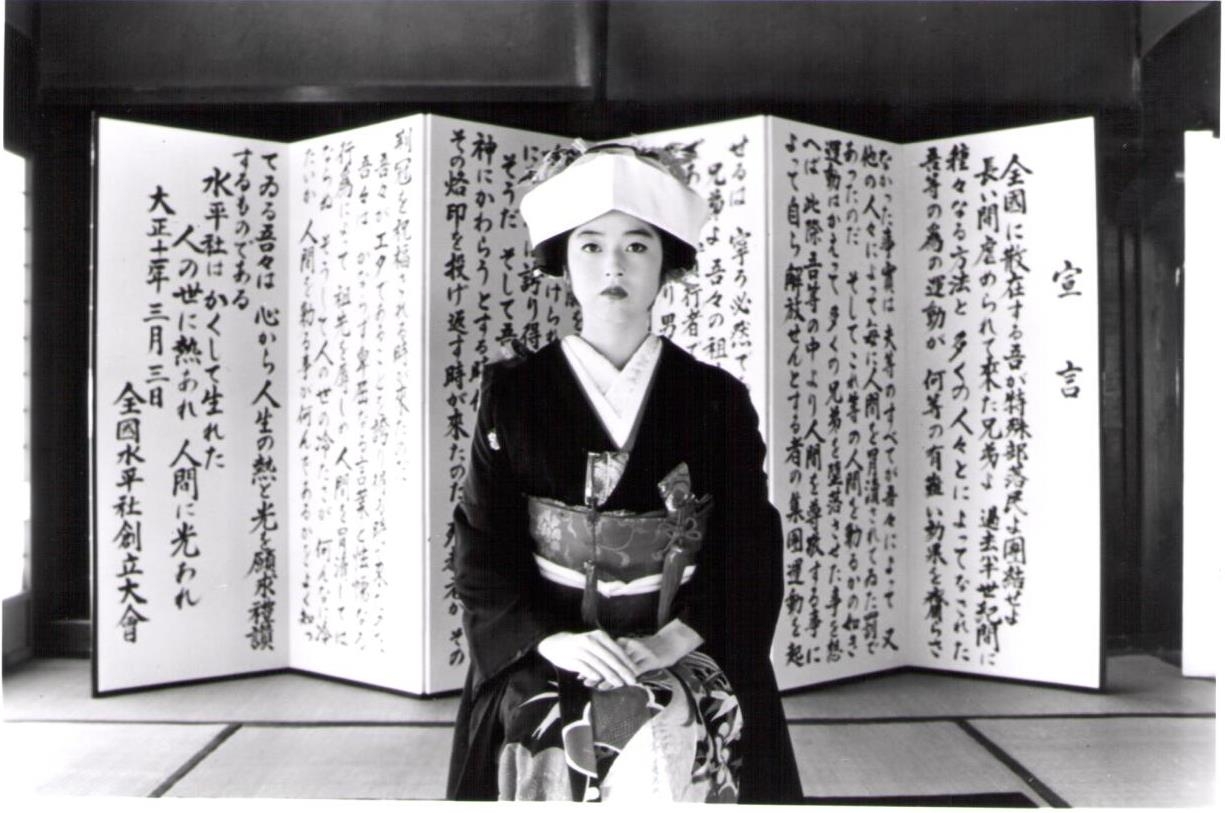 宣言
全國に散在する吾が特殊部落民よ團結せよ
長い間虐められて来た兄弟よ 過去半世紀間に
種々なる方法と 多くの人々とによってなされた
吾等の為の運動が 何等の有難い効果を齎らさ
なかった事實は 夫等のすべてが吾々によって 又
他の人々によって毎に人間を冒瀆されてゐた罰で
あったのだ そしてこれ等の人間を勦るかの如き
運動はかえって 多くの兄弟を堕落させた事を想
へば 此際吾等の中より人間を尊敬する事に
よって自ら解放せんとする者の集團運動を起
せるは 寧ろ必然で
兄弟よ 吾々の祖
行者で
り男
けられ
は誇り得
そうだ そして吾
神にかわらうとする時
その烙印を投げ返す時が来たのだ 殉教者が その
荊冠を祝福される時が来たのだ
吾々がエタであることを誇り得る時が来たのだ
吾々は かならず卑屈なる言葉と怯懦なる
行為によって 祖先を辱しめ 人間を冒瀆しては
ならぬ そうして人の世の冷たさが 何んなに冷
たいか 人間を勦る事が何んであるかをよく知っ
てゐる吾々は 心から人生の熱と光を願求禮讃
するものである
水平社はかくして生れた
人の世に熱あれ 人間に光あれ
大正十一年 三月 三日
全國水平社創立大會